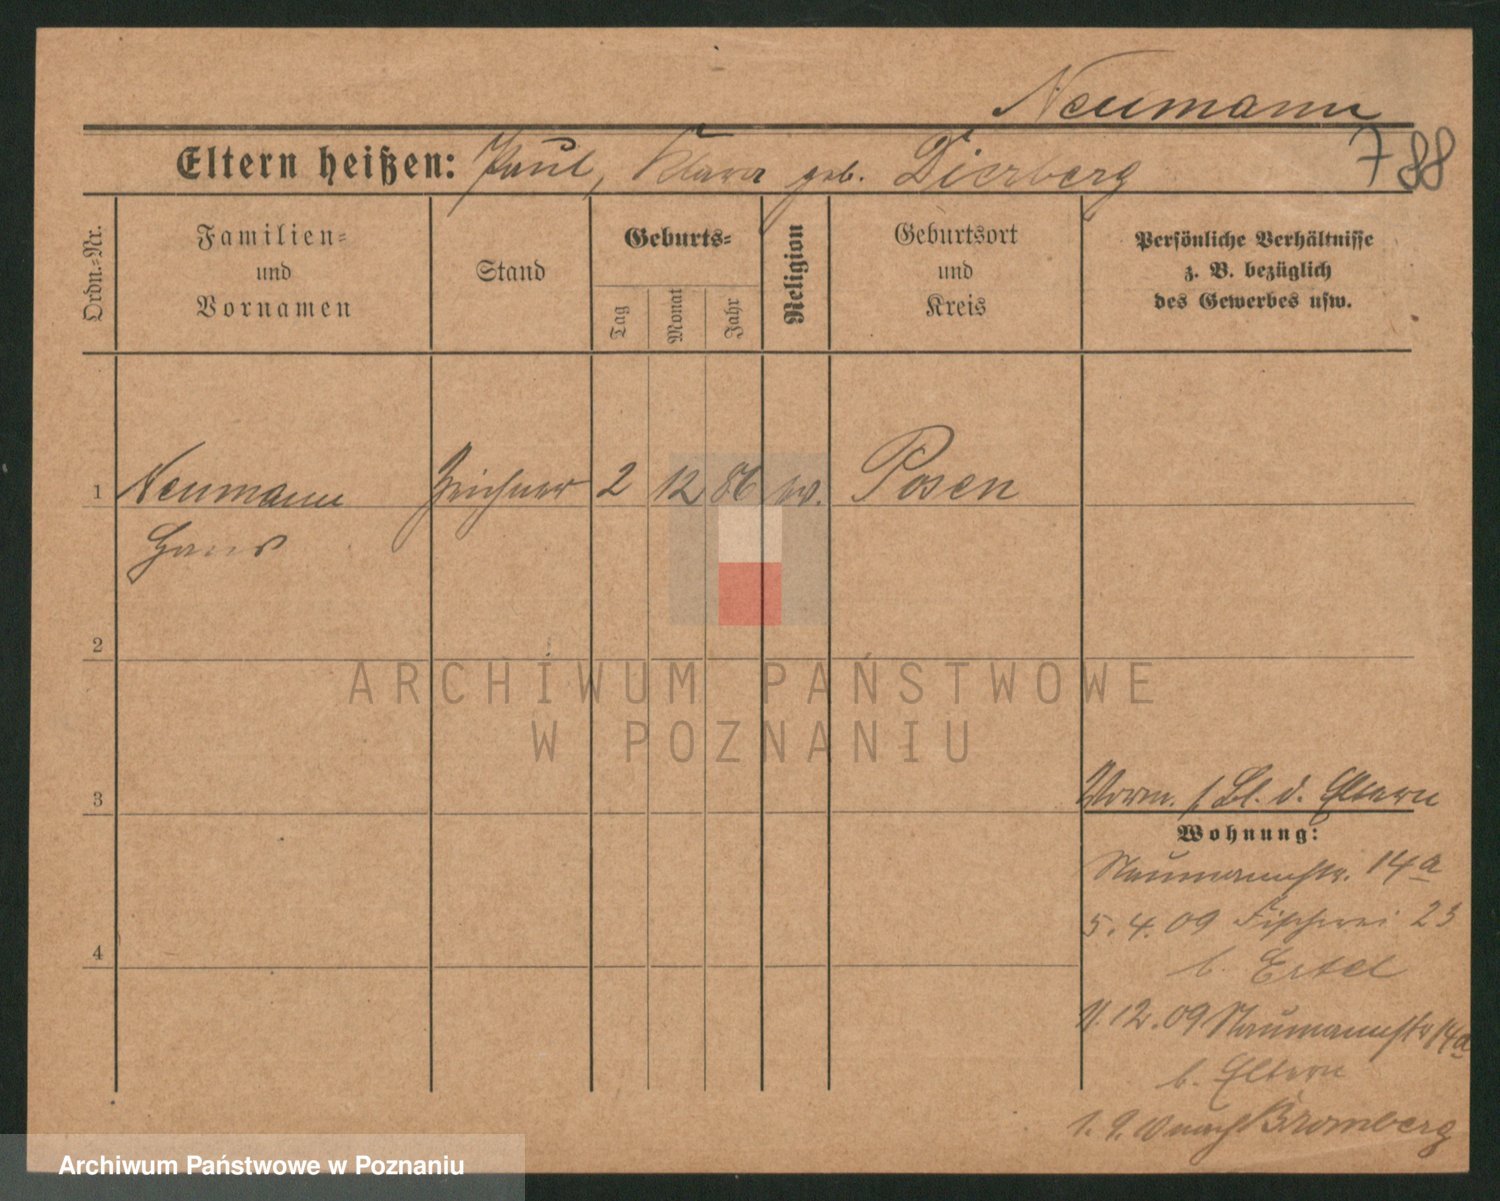 Neumann
Eltern heißen: Paul, Klara geb. Dierberg
788
Ordn.-Nr.
Familien-
und
Vornamen
Stand
Geburts-
Tag
Monat
Jahr
Religion
Geburtsort
und
Kreis
Persönliche Verhältnisse
z. B. bezüglich
des Gewerbes usw.
1 Neumann Zeichner 2 12 86 Posen
Hans
2
ARCHIWUM PAŃSTWOWE
W POZNANIU
3
Vorm. s. Bl. d. Eltern
Wohnung:
Naumannstr. 14a
5.4.09 Fischerei 23
b. Ertel
4
12.09 Naumannstr 14a
b. Eltern
1. 9. nach Bromberg
Archiwum Państwowe w Poznaniu